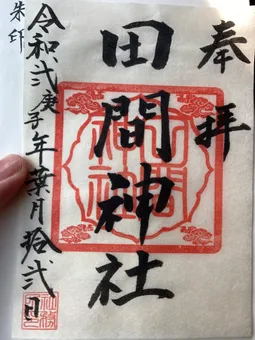 奉拝
田間神社
令和弐庚子年葉月拾弐日
朱印